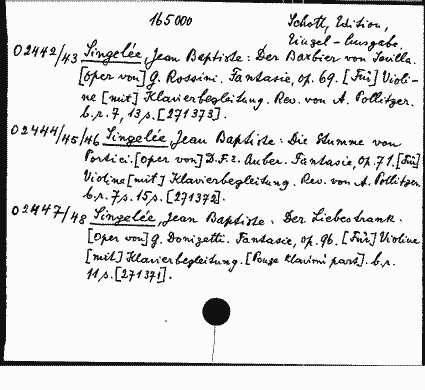 165000
Schott, Edition,
Einzel-Ausgabe.
02442/43 Singelée, Jean Baptiste: Der Barbier von Sevilla.
[oper von] G. Rossini. Fantasie, op. 69. [Für] Violi-
ne [mit] Klavierbegleitung. Rev. von A. Pollitzer.
b.r. 7, 13 s. [271373].
02444/45/46 Singelée, Jean Baptiste: Die Stumme von
Portici. [oper von] D.F.E. Auber. Fantasie, op. 71. [Für]
Violine [mit] Klavierbegleitung. Rev. von A. Pollitzer
b.r. 7 s. 15 s. [271372].
02447/48 Singelée, Jean Baptiste. Der Liebestrank.
[oper von] G. Donizetti. Fantasie, op. 96. [Für] Violine
[mit] Klavierbegleitung. [klavirni part]. b.r.
11 s. [271371].